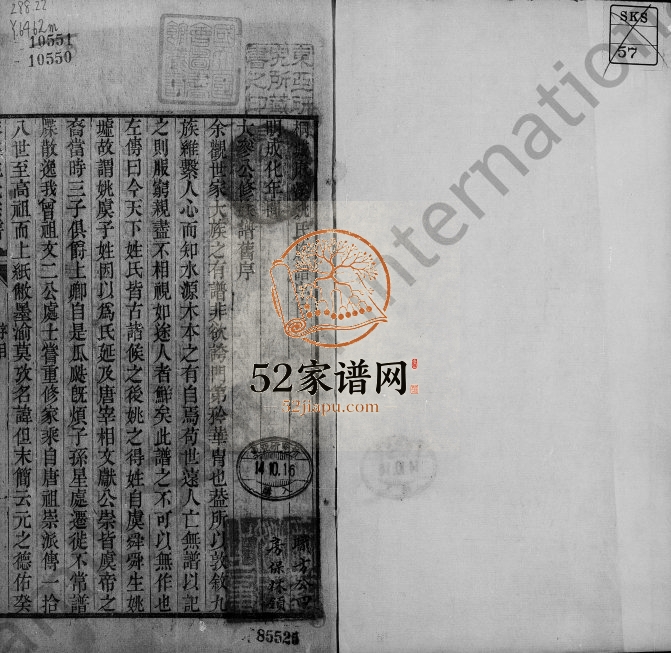 288.22
10551
10550
SKS
57
明成化年間
太參公修譜舊序
余觀世家大族之有譜非欲誇門第矜華胄也葢所以敦敘九
族維繫人心而知水源木本之有自焉苟世遠人亡無譜以記
之則服窮親盡不相視如途人者鮮矣此譜之不可以無作也
左傳曰今天下姓氏皆古諸侯之後姚之得姓自虞舜舜生姚
墟故謂姚虞子姓因以爲氏延及唐宰相文獻公崇皆虞帝之
裔當時三子俱爵上卿自是瓜瓞旣煩子孫星處遷徙不常譜
牒散逸我曾祖文二公處士嘗重修家乘自唐祖崇派傳一拾
八世至高祖而上紙敝墨渝莫攷名諱但末簡云元之德佑癸
52家谱网
52jiapu.com
14.10.16
85525